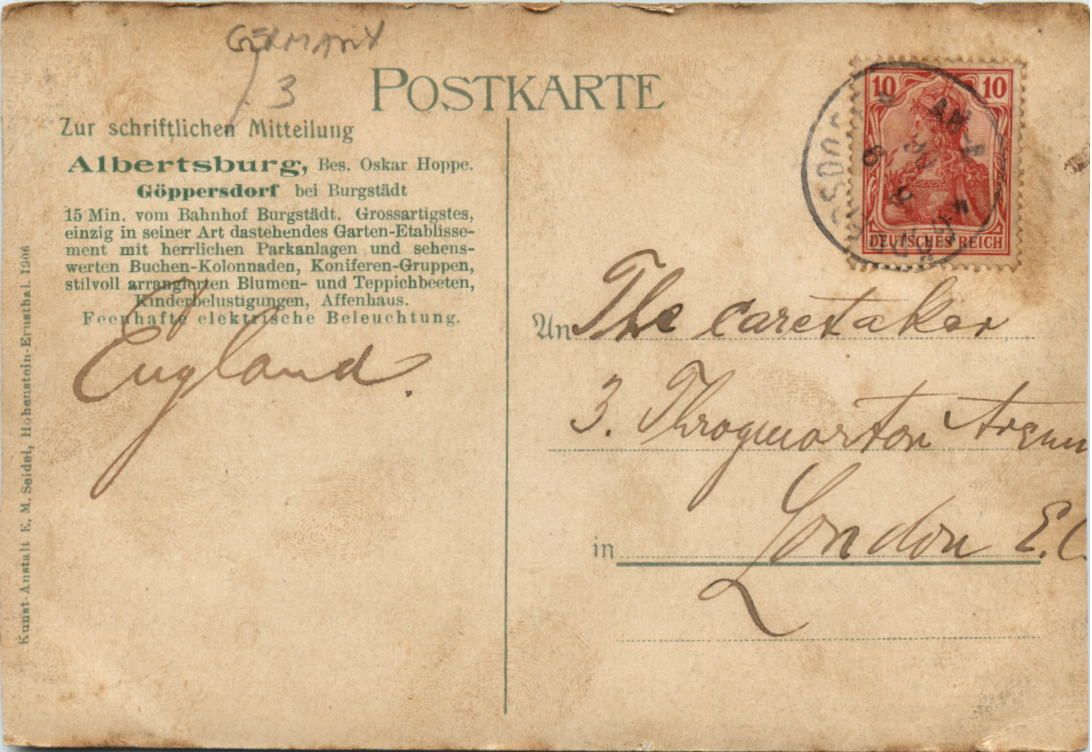 GERMANY
3
POSTKARTE
Zur schriftlichen Mitteilung
Albertsburg, Bes. Oskar Hoppe.
Göppersdorf bei Burgstädt
15 Min. vom Bahnhof Burgstädt. Grossartigstes,
einzig in seiner Art dastehendes Garten-Etablisse-
ment mit herrlichen Parkanlagen und sehens-
werten Buchen-Kolonnaden, Koniferen-Gruppen,
stilvoll arrangierten Blumen- und Teppichbeeten,
Kinderbelustigungen, Affenhaus.
Feenhafte elektrische Beleuchtung.
England.
Kunst-Anstalt E. M. Seidel, Hohenstein-Ernstthal. 1906
10 10
DEUTSCHES REICH
An The caretaker
3. Throgmorton Avenu
in London E.C